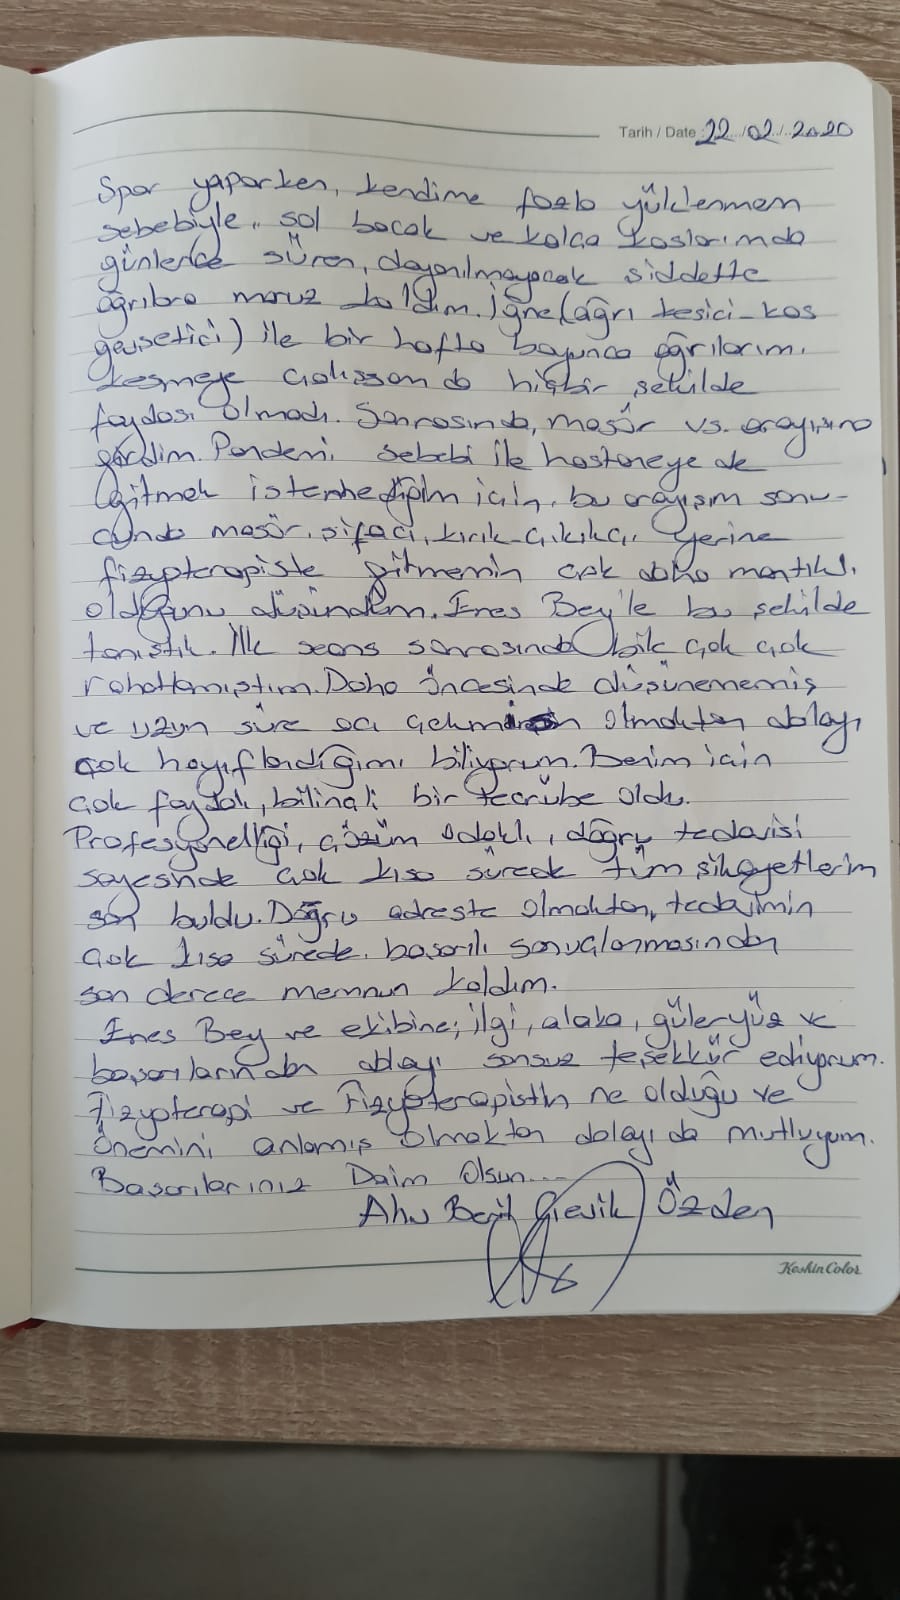 Tarih / Date : 22/02/2020
Spor yaparken, kendime fazla yüklenmem
sebebiyle, sol bacak ve kalça kaslarımda
günlerce süren, dayanılmayacak şiddette
ağrılara maruz kaldım. İğne (ağrı kesici-kas
gevşetici) ile bir hafta boyunca ağrılarımı
kesmeye çalışsam da hiçbir şekilde
faydası olmadı. Sonrasında, masör vs. arayışına
girdim. Pandemi sebebi ile hastaneye de
gitmek istemediğim için, bu arayışım sonu-
cunda masör, şifacı, kırık-çıkıkçı yerine
fizyoterapiste gitmemin çok daha mantıklı
olduğunu düşündüm. Enes Bey'le bu şekilde
tanıştık. İlk seans sonrasında bile çok çok
rahatlamıştım. Daha öncesinde düşünememiş
ve uzun süre acı çekmiş olmaktan dolayı
çok hayıflandığımı biliyorum. Benim için
çok faydalı, bilinçli bir tecrübe oldu.
Profesyonelliği, çözüm odaklı, doğru tedavisi
sayesinde çok kısa sürede tüm şikayetlerim
son buldu. Doğru adreste olmaktan, tedavimin
çok kısa sürede başarılı sonuçlanmasından
son derece memnun kaldım.
Enes Bey ve ekibine; ilgi, alaka, güleryüz ve
başarılarından dolayı sonsuz teşekkür ediyorum.
Fizyoterapi ve Fizyoterapistin ne olduğu ve
önemini anlamış olmaktan dolayı da mutluyum.
Başarılarınız Daim Olsun...
Ahu Özden
KeskinColor